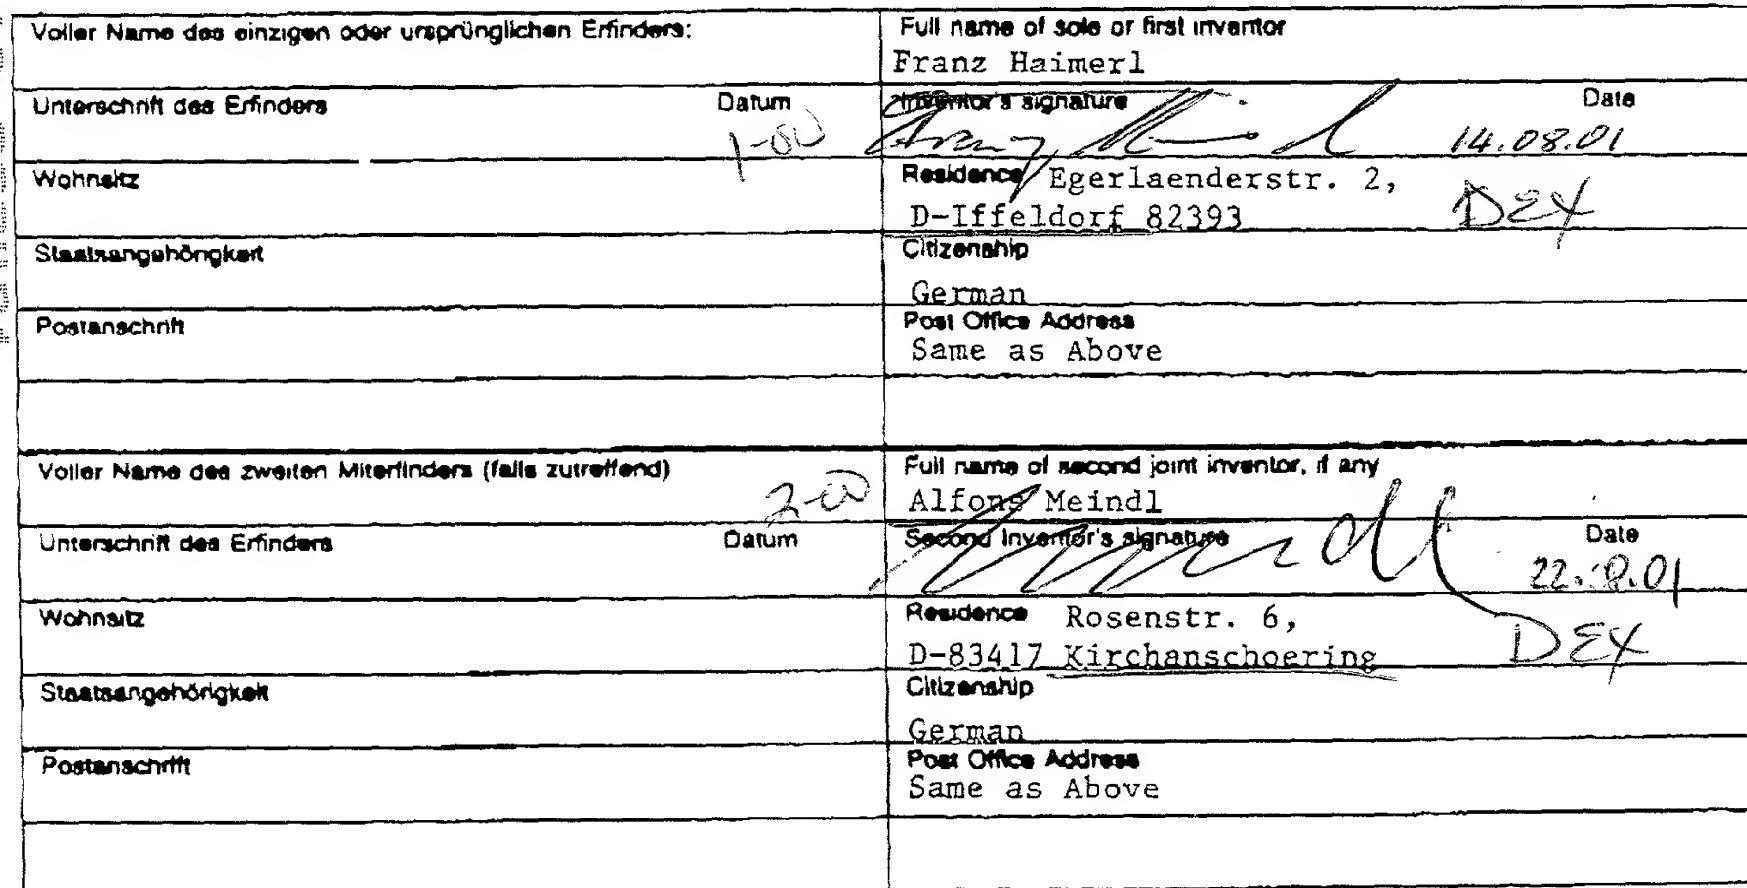 Voller Name des einzigen oder ursprünglichen Erfinders:
Full name of sole or first inventor
Franz Haimerl
Unterschrift des Erfinders Datum
1-00
Inventor's signature Date
14.08.01
Wohnsitz
Residence Egerlaenderstr. 2,
D-Iffeldorf 82393
DEX
Staatsangehörigkeit
Citizenship
German
Postanschrift
Post Office Address
Same as Above
Voller Name des zweiten Miterfinders (falls zutreffend)
2-00
Full name of second joint inventor, if any
Alfons Meindl
Unterschrift des Erfinders Datum
Second Inventor's signature Date
Wohnsitz
Residence Rosenstr. 6,
D-83417 Kirchanschoering
DEX
Staatsangehörigkeit
Citizenship
German
Postanschrift
Post Office Address
Same as Above